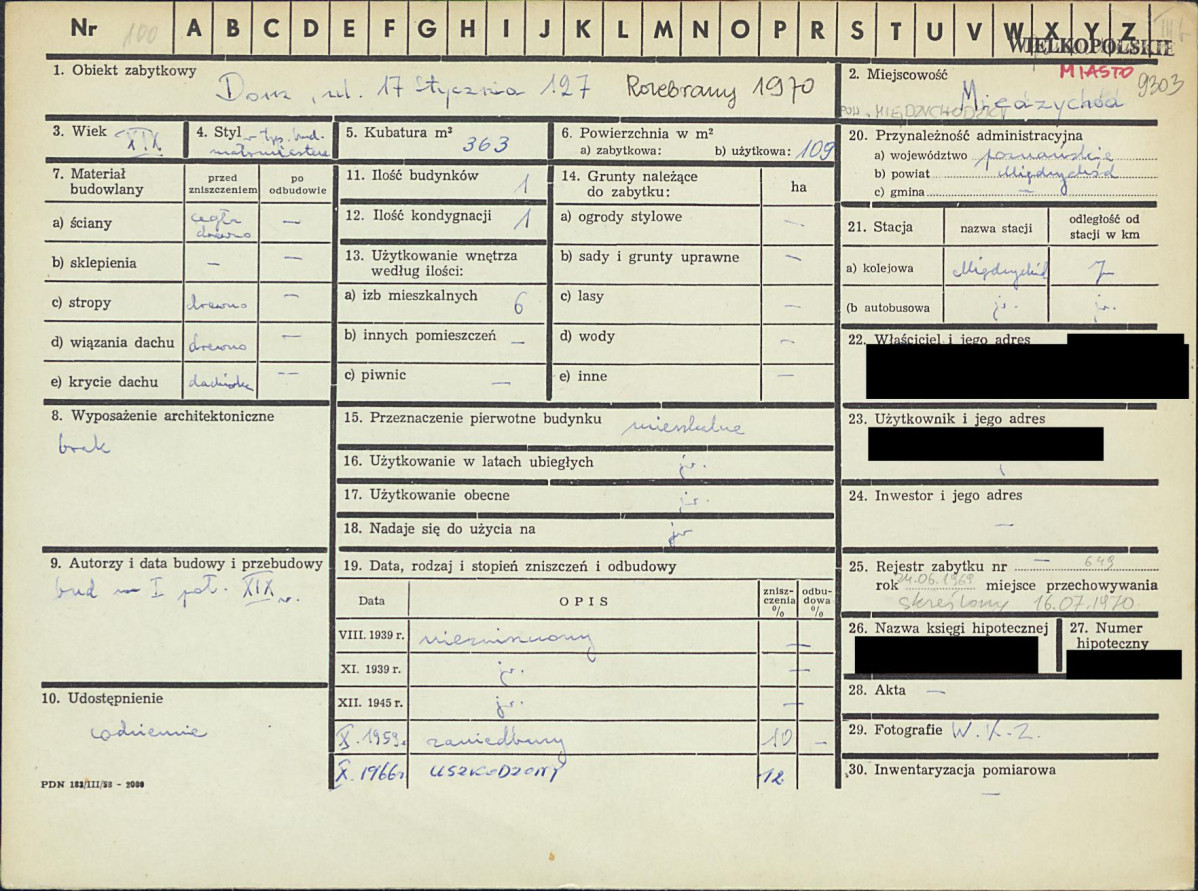 Nr 100 A B C D E F G H I J K L M N O P R S T U V W X Y Z
WIELKOPOLSKIE
1. Obiekt zabytkowy
Dom, ul. 17 Stycznia 127 Rozebrany 1970
2. Miejscowość MIASTO 9303
POW. MIĘDZYCHODZKI Międzychód
3. Wiek XIX
4. Styl w typ. bud. małomiasteczk.
5. Kubatura m³ 363
6. Powierzchnia w m²
a) zabytkowa: b) użytkowa: 109
7. Materiał budowlany
przed zniszczeniem
po odbudowie
a) ściany cegła drewno —
b) sklepienia — —
c) stropy drewno —
d) wiązania dachu drewno —
e) krycie dachu dachówka —
8. Wyposażenie architektoniczne
brak
9. Autorzy i data budowy i przebudowy
bud w I poł. XIX w.
10. Udostępnienie
codziennie
PDN 183/III/58 - 2000
11. Ilość budynków 1
12. Ilość kondygnacji 1
13. Użytkowanie wnętrza według ilości:
a) izb mieszkalnych 6
b) innych pomieszczeń —
c) piwnic —
14. Grunty należące do zabytku: ha
a) ogrody stylowe —
b) sady i grunty uprawne —
c) lasy —
d) wody —
e) inne —
15. Przeznaczenie pierwotne budynku mieszkalne
16. Użytkowanie w latach ubiegłych jw.
17. Użytkowanie obecne jw.
18. Nadaje się do użycia na jw
19. Data, rodzaj i stopień zniszczeń i odbudowy
Data OPIS zniszczenia % odbudowa %
VIII. 1939 r. niezniszczony —
XI. 1939 r. jw. —
XII. 1945 r. jw. —
X. 1959r. zaniedbany 10 —
X. 1966r USZKODZONY 12
20. Przynależność administracyjna
a) województwo poznańskie
b) powiat Międzychód
c) gmina —
21. Stacja nazwa stacji odległość od stacji w km
a) kolejowa Międzychód
(b autobusowa jw. jw.
22. Właściciel i jego adres
23. Użytkownik i jego adres
24. Inwestor i jego adres
—
25. Rejestr zabytku nr — 649
rok 24.06.1969 miejsce przechowywania
skreślony 16.07.1970
26. Nazwa księgi hipotecznej
27. Numer hipoteczny
28. Akta —
29. Fotografie W.K.Z.
30. Inwentaryzacja pomiarowa
—